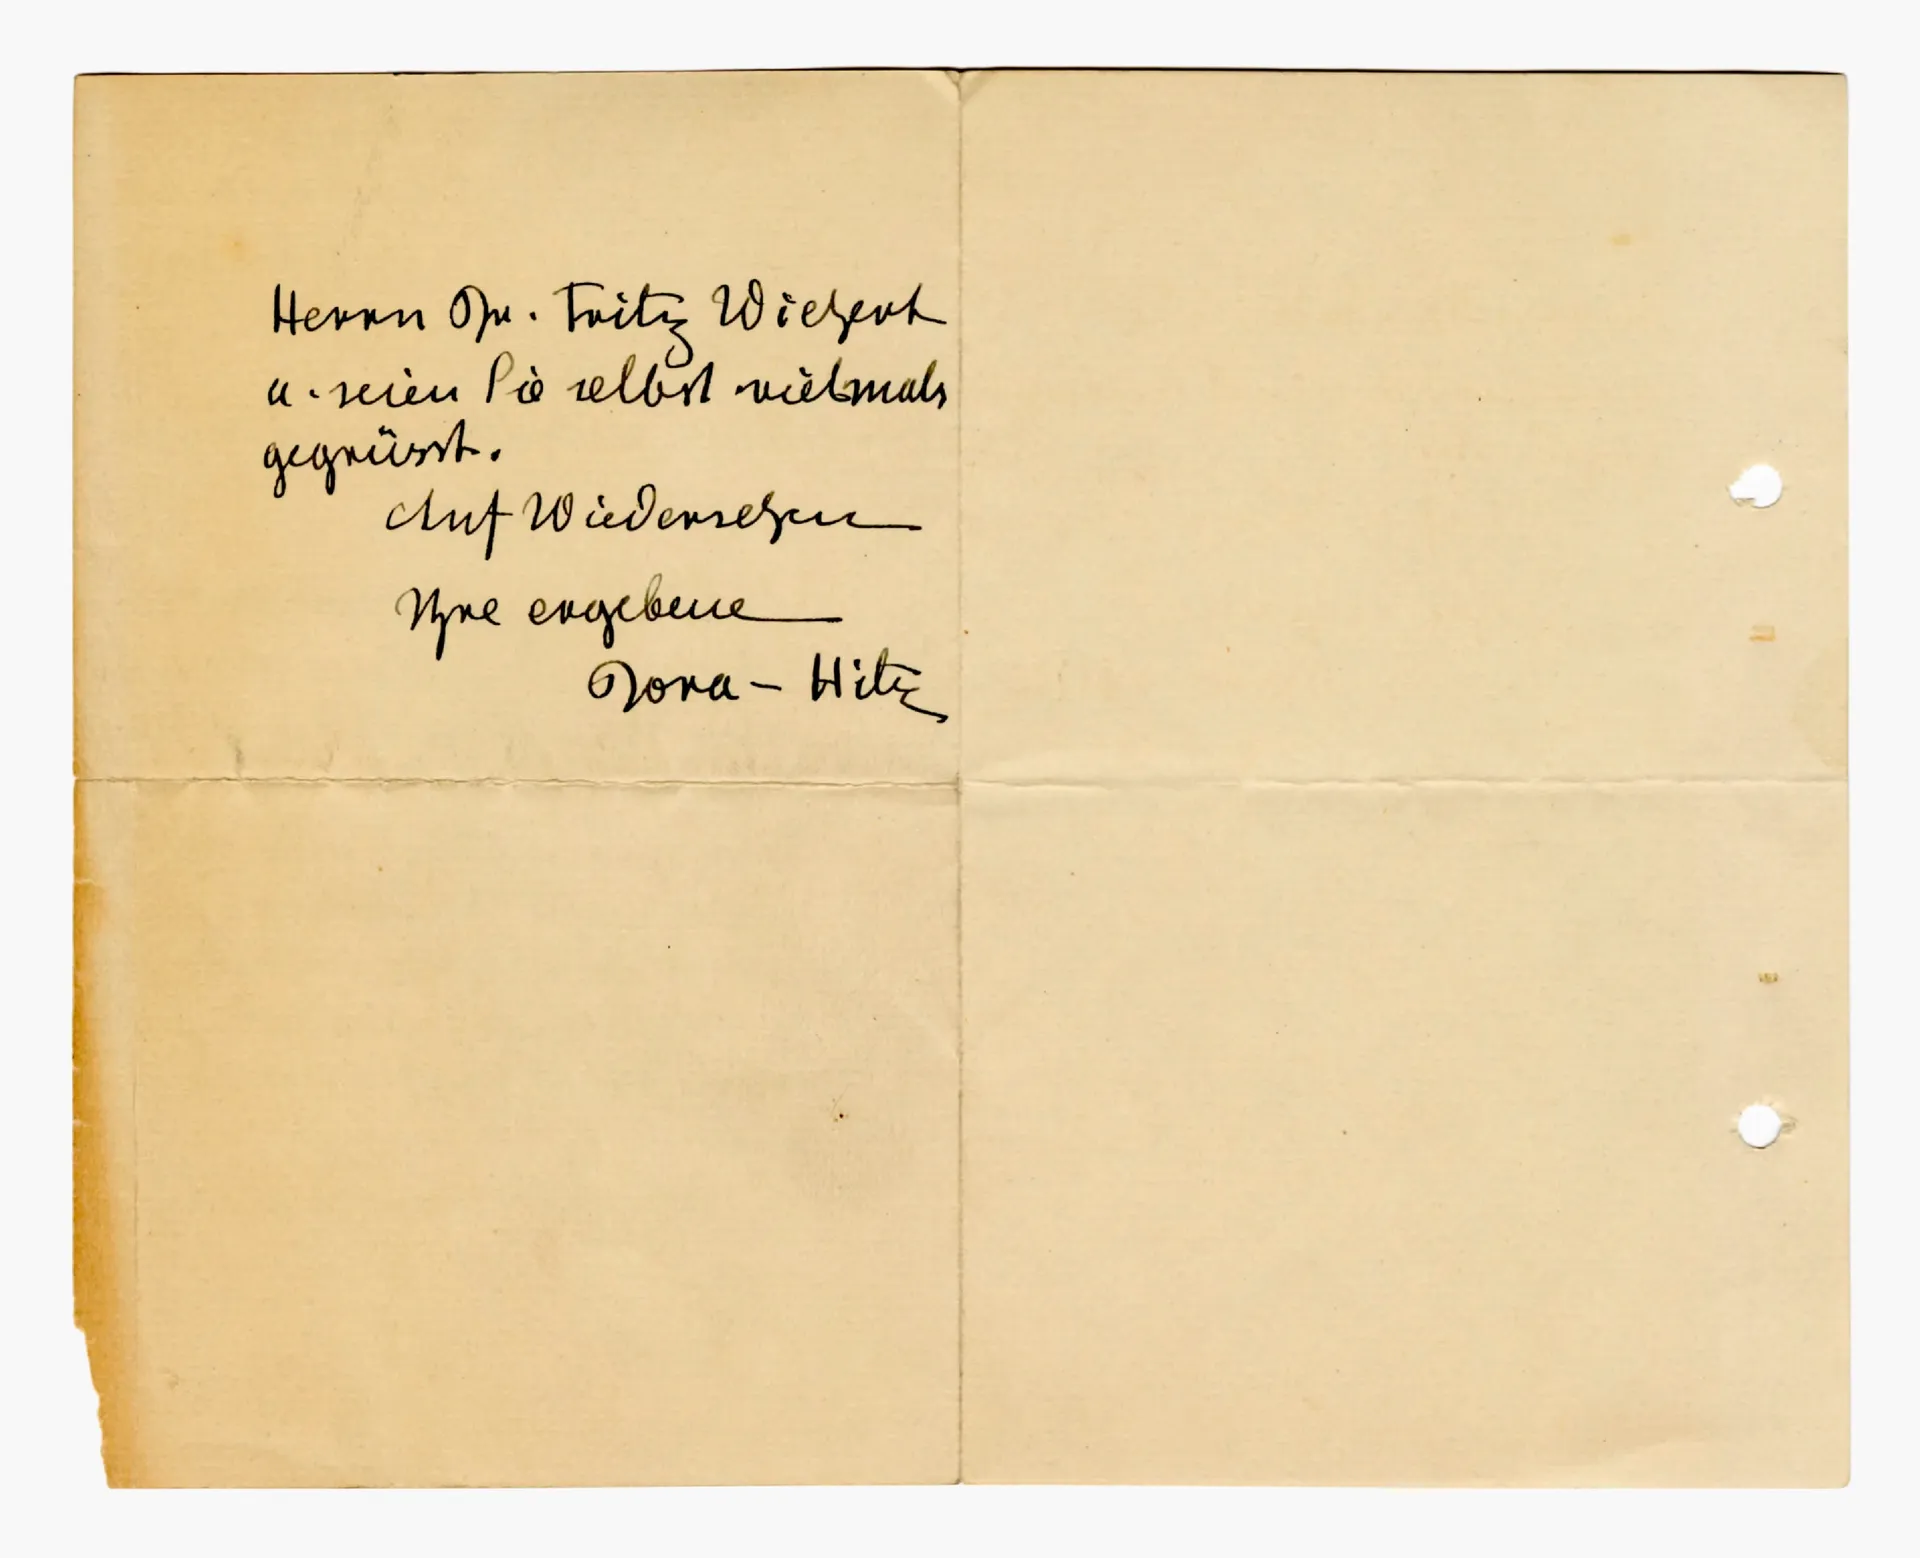 Herrn Dr. Fritz Wichert
u. seien Sie selbst vielmals
gegrüsst.
Auf Wiedersehen
Ihre ergebene
Dora – Hitz